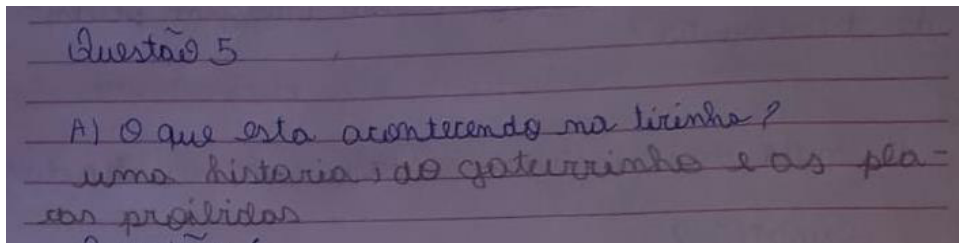 Questão 5
A) O que esta acontecendo na tirinha?
uma historia, do gaturrinho e as pla=
cas proibidas